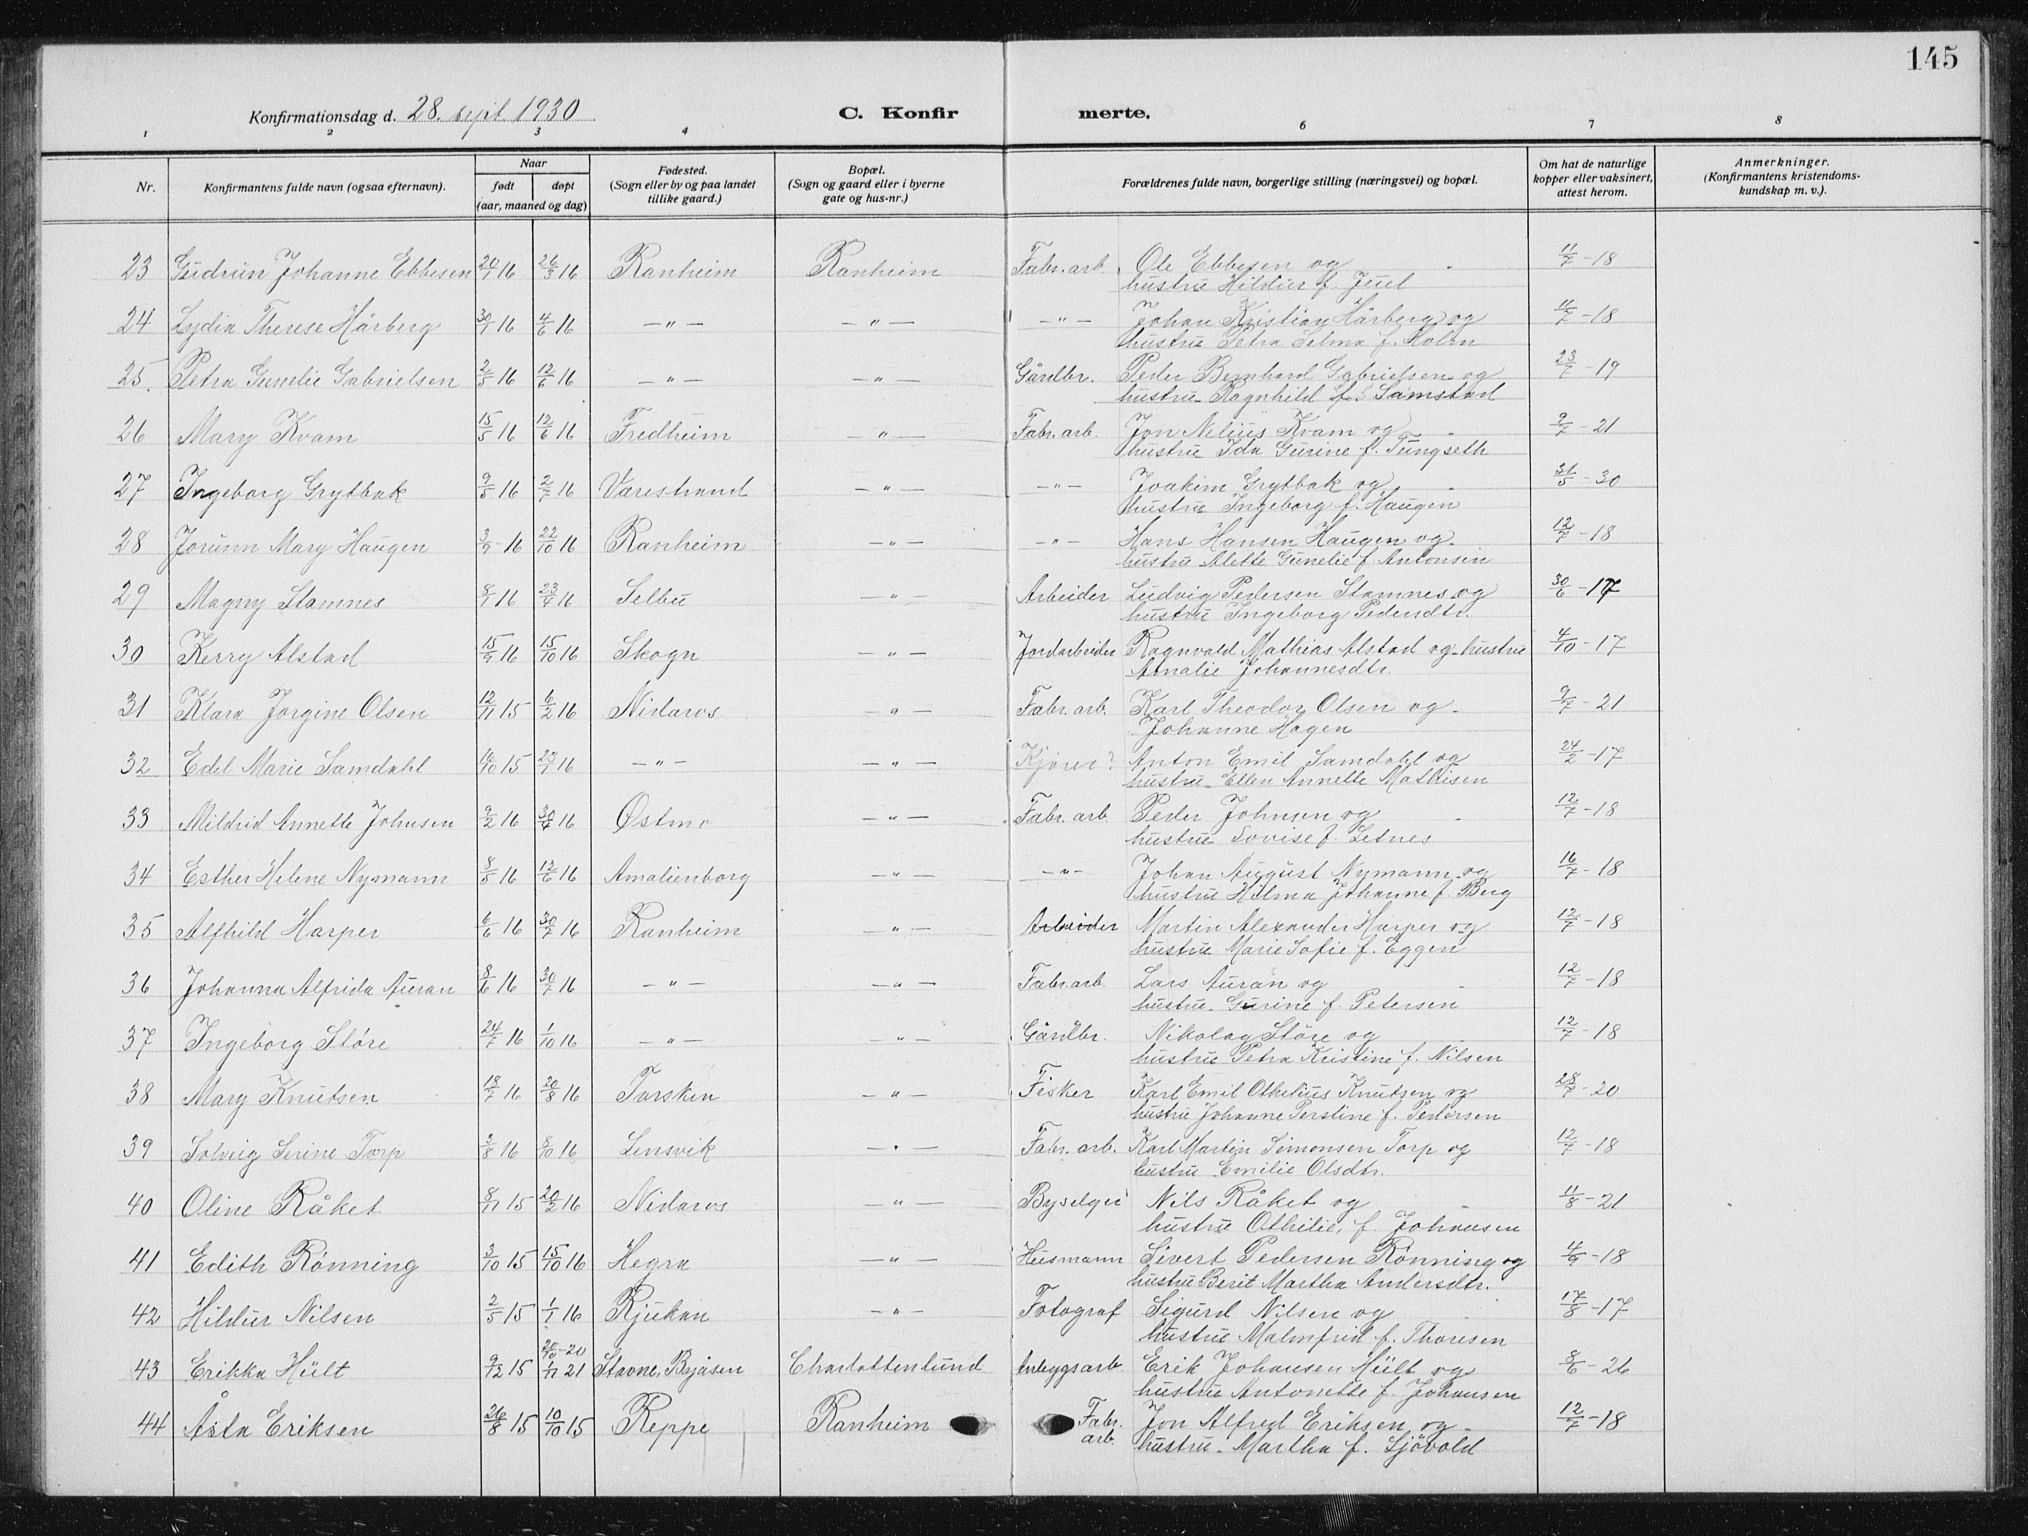 145
Konfirmationsdag d. 28. sept. 1930
C. Konfir merte.
1 2 3 4 6 7 8
Nr.
Konfirmantens fulde navn (ogsaa efternavn).
Naar
født døpt
(aar, maaned og dag)
Fødested.
(Sogn eller by og paa landet
tillike gaard.)
Bopæl.
(Sogn og gaard eller i byerne
gate og hus-nr.)
Forældrenes fulde navn, borgerlige stilling (næringsvei) og bopæl.
Om hat de naturlige
kopper eller vaksinert,
attest herom.
Anmerkninger.
(Konfirmantens kristendoms-
kundskap m. v.).
23 Gudrun Johanne Ebbesen 20/1 16 26/3 16 Ranheim Ranheim Fabr. arb. Ole Ebbesen og 11/7 - 18
hustru Hildur f. Juul
24 Lydia Therese Hårberg 30/1 16 4/6 16 — " — — " — — " — Johan Kristian Hårberg og 11/7 - 18
hustru Petra Selma f. Holm
25. Petra Gunelie Gabrielsen 2/5 16 12/6 16 — " — — " — Gårdbr. Peder Bernhard Gabrielsen og 23/7 - 19
hustru Ragnhild f. Samstad
26 Mary Kvam 15/5 16 12/6 16 Fredheim — " — Fabr. arb. Jon Nelius Kvam og 9/7 - 21
hustru Ida Gurine f. Tungseth
27 Ingeborg Grytbak 9/5 16 2/7 16 Værestrand — " — — " — Joakim Grytbak og 31/5 - 30
hustru Ingeborg f. Haugen
28 Jorunn Mary Haugen 3/9 - 16 22/10 16 Ranheim — " — — " — Hans Hansen Haugen og 12/7 - 18
hustru Alette Gunelie f. Antonsen
29 Magny Stamnes 8/1 16 23/4 16 Selbu — " — Arbeider Ludvig Pedersen Stamnes og 30/6 - 17
hustru Ingeborg Pedersdtr.
30 Kerry Alstad 15/9 16 15/10 16 Skogn — " — Jordarbeider Ragnvald Mathias Alstad og hustru 4/10 - 17
Amalie Johannesdtr.
31 Klara Jørgine Olsen 12/11 15 6/2 16 Nidaros — " — Fabr. arb. Karl Theodor Olsen og 9/7 - 21
Johanne Hagen
32 Edel Marie Samdahl 16/10 15 23/1 16 — " — — " — Kjører? Anton Emil Samdahl og 24/2 - 17
hustru Ellen Annette Mathisen
33 Mildrid Annette Johnsen 9/2 16 30/4 16 Østmo — " — Fabr. arb. Peder Johnsen og 12/7 - 18
hustru Lovise f. Letnes
34 Esther Helene Nymann 8/5 16 12/6 16 Amalienborg — " — — " — Johan August Nymann og 16/7 - 18
hustru Hilma Johanne f. Berg
35 Alfhild Harper 6/6 16 30/7 16 Ranheim — " — Arbeider Martin Alexander Harper og 12/7 - 18
hustru Marie Sofie f. Eggen
36 Johanna Alfrida Auran 8/6 16 30/7 16 — " — — " — Fabr. arb. Lars Auran og 12/7 - 18
hustru Gurine f. Petersen
37 Ingeborg Støre 24/7 16 1/10 16 — " — — " — Gårdbr. Nikolay Støre og 12/7 - 18
hustru Petra Kristine f. Nilsen
38 Mary Knutsen 18/7 16 20/8 16 Torsken — " — Fisker Karl Emil Othelius Knutsen og 28/7 - 20
hustru Johanne Perstine f. Pedersen
39 Solveig Serine Torp 3/8 16 8/10 16 Lensvik — " — Fabr. arb. Karl Martin Simonsen Torp og 12/7 - 18
hustru Emilie Olsdtr.
40 Oline Råket 8/11 15 20/2 16 Nidaros — " — Byselger Nils Råket og 11/8 - 21
hustru Othilie, f. Johansen
41 Edith Rønning 3/10 15 15/10 16 Hegra — " — Husmann Sivert Pedersen Rønning og 4/9 - 18
hustru Berit Martha Andersdtr.
42 Hildur Nilsen 2/5 15 1/1 16 Rjukan — " — Fotograf Sigurd Nilsen og 17/8 - 17
hustru Malmfrid f. Thoresen
43 Erikka Hült 9/12 15 1/11 21 Stavne, Byåsen Charlottenlund Anleggsarb. Erik Johansen Hült og 8/6 - 26
hustru Antonette f. Johansen
44 Åsta Eriksen 26/8 15 10/10 15 Reppe Ranheim Fabr. arb. Jon Alfred Eriksen og 12/7 - 18
hustru Martha f. Sjøvold